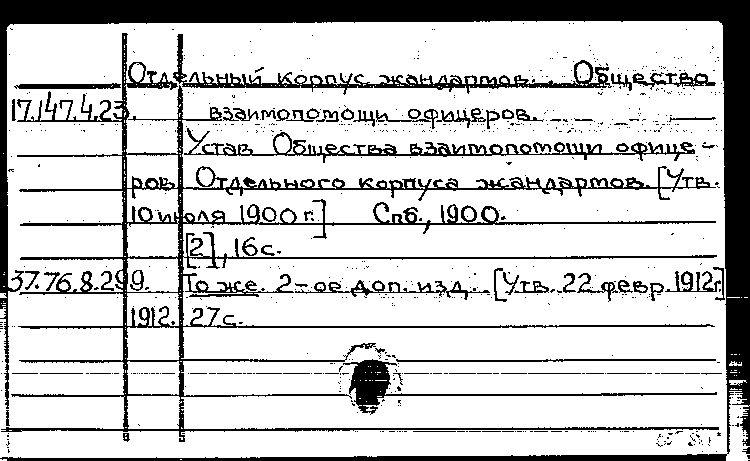 Отдельный корпус жандармов. . Общество
17.147.4.23. взаимопомощи офицеров.
Устав Общества взаимопомощи офице-
ров Отдельного корпуса жандармов. [Утв.
10 июля 1900 г.] Спб., 1900.
[2], 16 с.
37.76.8.299. То же. 2-ое доп. изд. . [Утв. 22 февр. 1912 г.]
1912. 27 с.